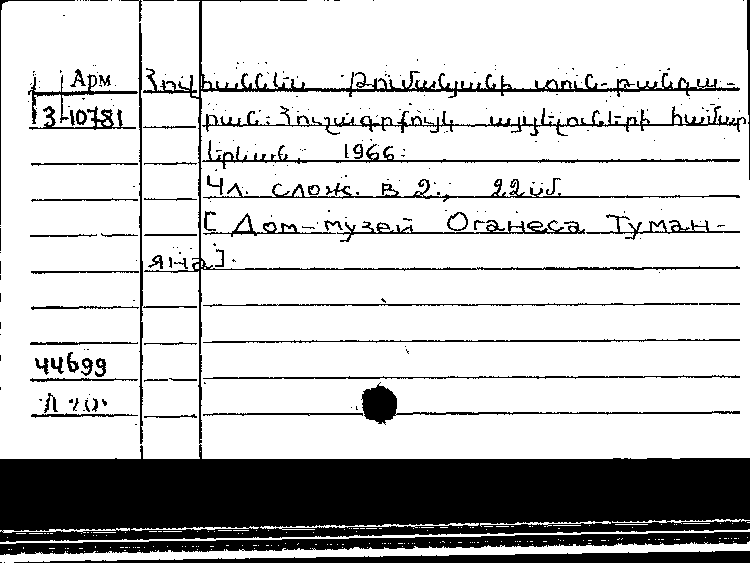 Арм Հովհաննես Թումանյանի տուն-թանգա-
3-10781 րան: Հուշագրքույկ այցելուների համար
Երևան, 1966:
4 л. слож. в 2., 22 սմ.
[Дом-музей Оганеса Туман-
яна].
44699